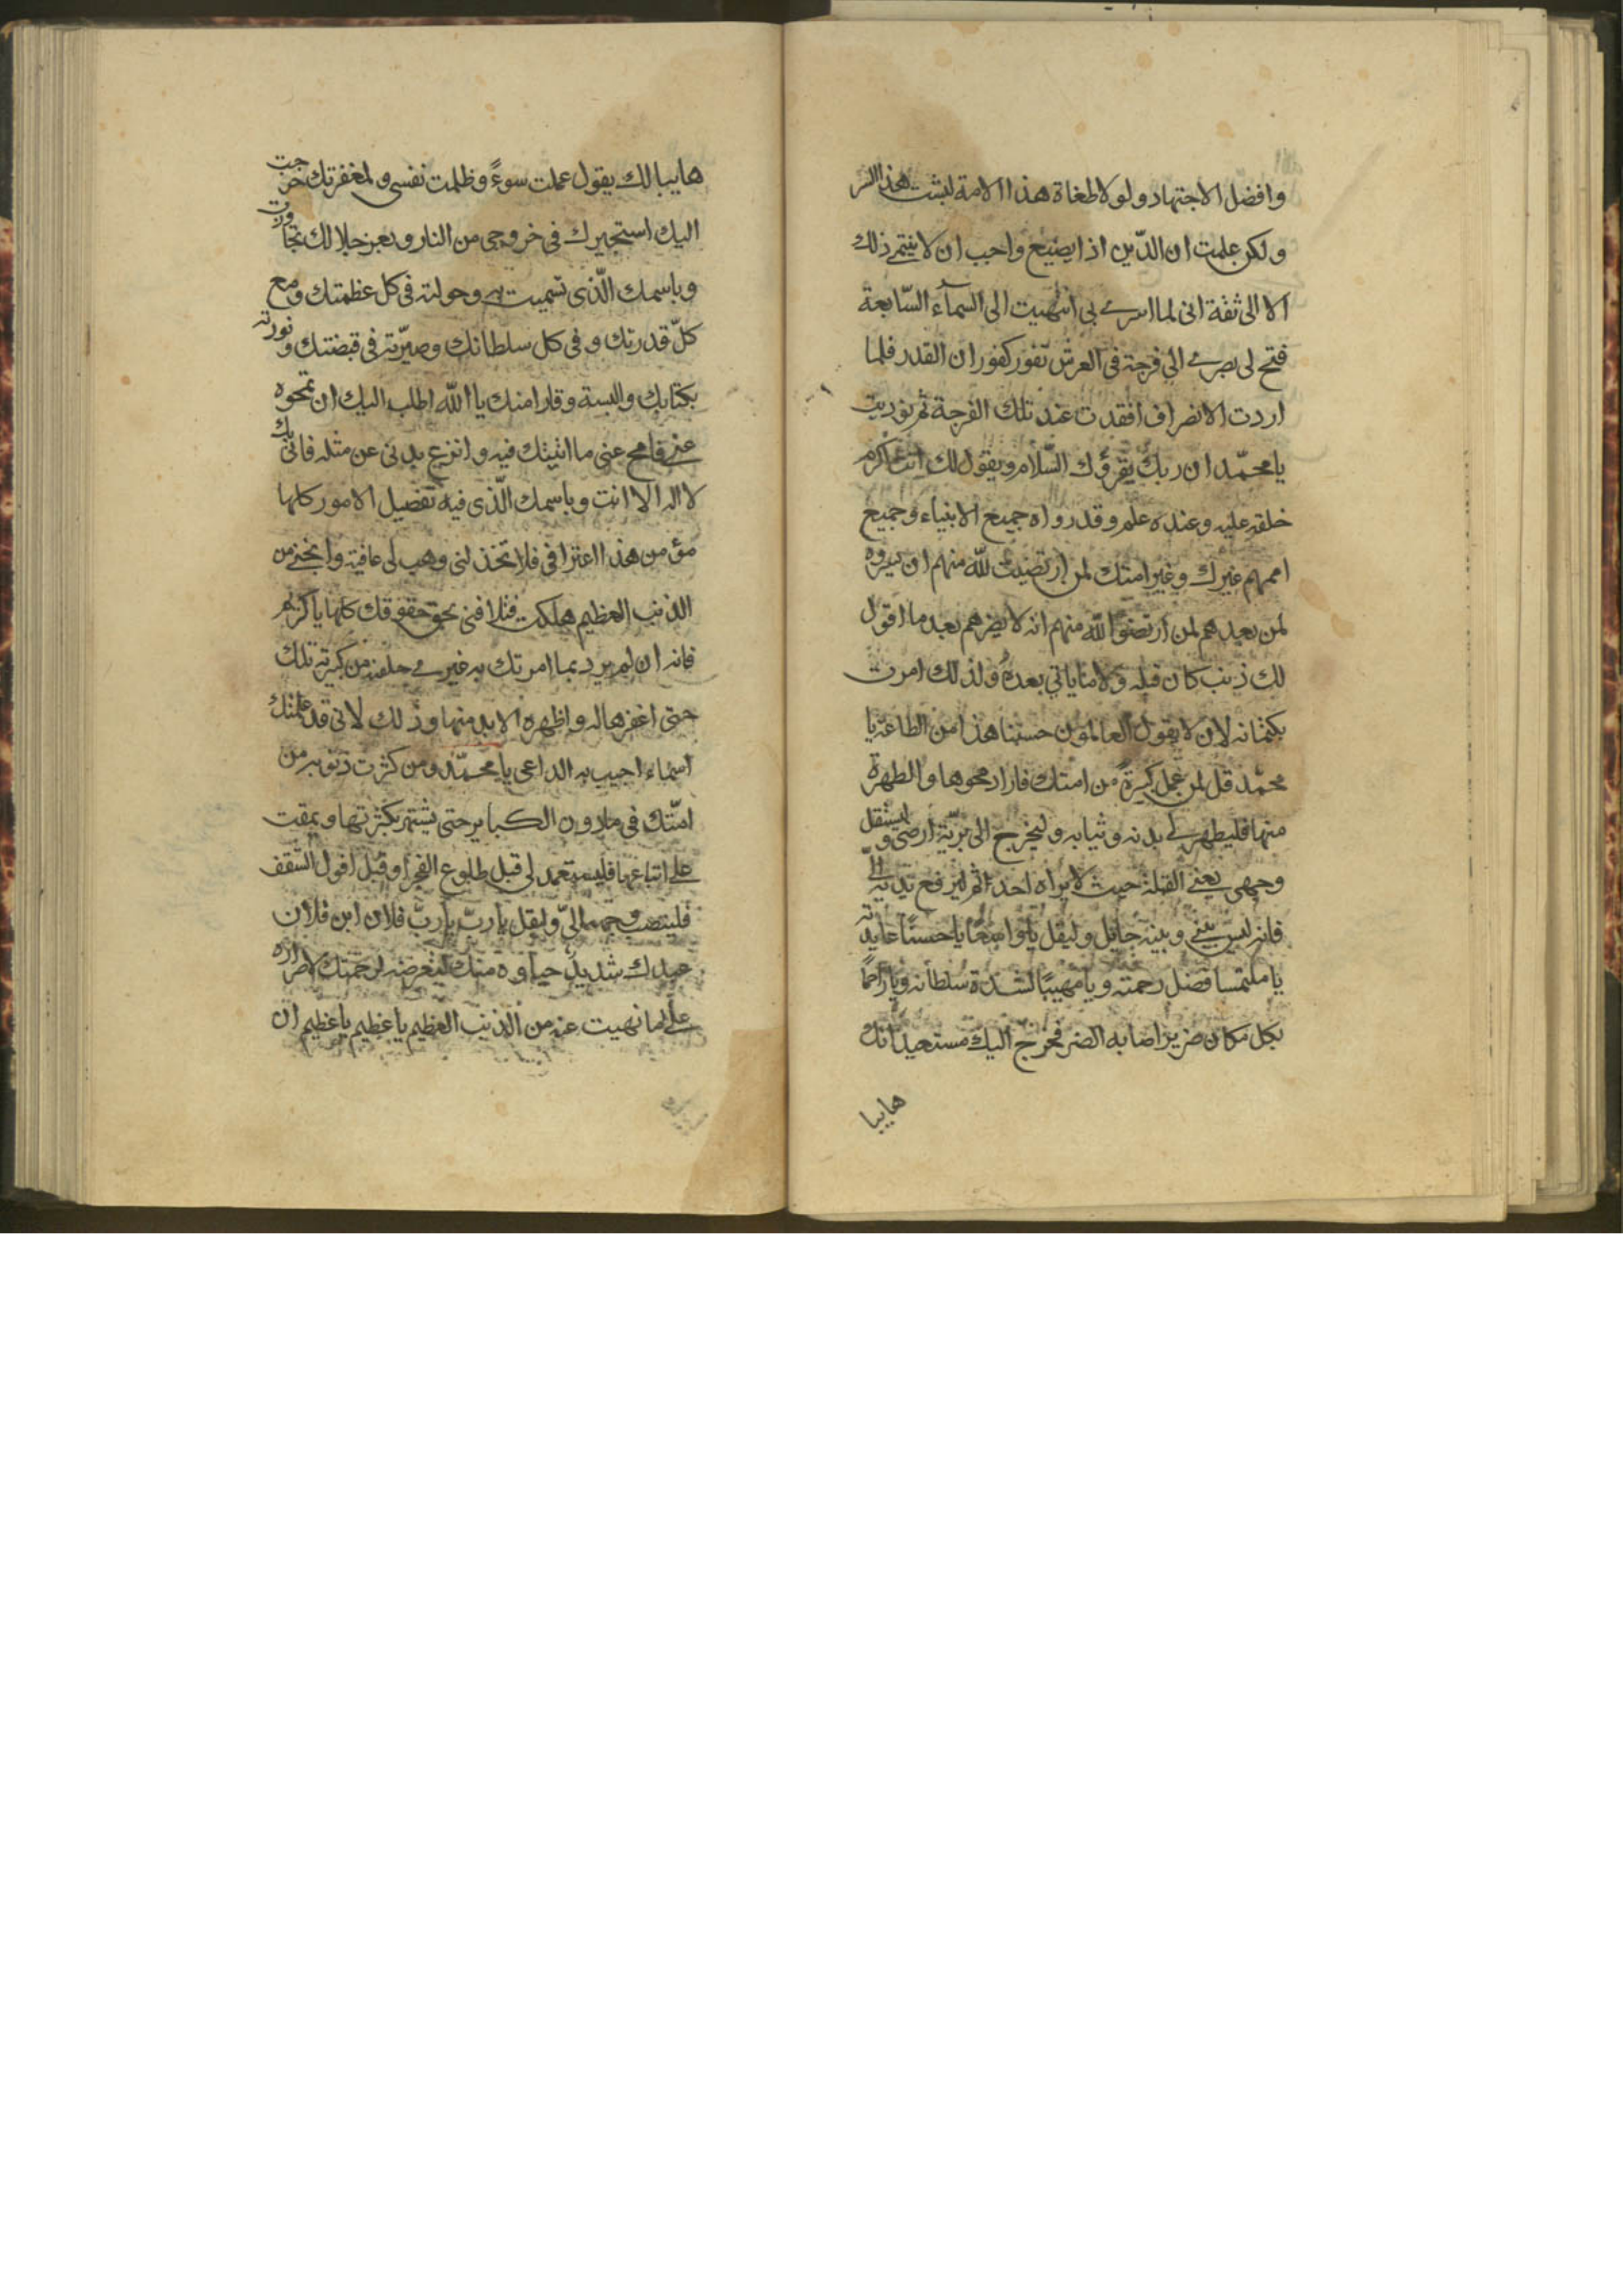 وافضل الاجتهاد ولولا طغاة هذا الامة لبثت هذا السر
ولكن علمت ان الدّين اذا يضيع واحب ان لا ينتهى ذلك
الا الى ثقة انى لما اسرى بى انتهيت الى السمآء السّابعة
فتح لى بصرى الى فرجة فى العرش تفور كفوران القدر فلما
اردت الانصراف افقدت عند تلك الفرجة ثم نوديت
يا محمّد ان ربك يقرؤك السّلام ويقول لك انت اكرم
خلقه عليه وعنده علم وقد رواه جميع الانبياء وجميع
اممهم غيرك وغير امتك لمن ارتضيت لله منهم ان ينبروه
لمن بعدهم لمن ارتضوا لله منهم انه لا يضرهم بعد ما اقول
لك ذنب كان قبله ولا ما ياتى بعده ولذلك امرت
بكتمانه لان لا يقول العالمون حسبنا هذا من الطاعة يا
محمّد قل لمن عمل كبيرة من امتك فاراد محوها والطهرة
منها فليطهر لى بدنه وثيابه وليخرج الى بريّة ارضى وليستقبل
وجهى يعنى القبلة حيث لا يراه احد ثم ليرفع يديه الىّ
فانه ليس بينى وبينه حايل وليقل يا واسعا يا حسنا عايدته
يا ملتمسا فضل رحمته ويا مهيبًا لشدة سلطانه ويا راحمًا
بكل مكان ضريرا اصابه الضر فخرج اليك مستعيذا بك
هايبا
هايبا لك يقول عملت سوءً وظلمت نفسى ولمغفرتك خرجت
اليك استجير ك فى خروجى من النار وبعز جلالك تجاوزت
وباسمك الّذى تسميت به وحولته فى كل عظمتك ومع
كلّ قدرتك وفى كل سلطانك وصيّرته فى قبضتك ونورته
بكتابك والبسته وقارا منك يا الله اطلب اليك ان تمحوه
عنى فامح عنى ما اتيتك فيه وانزع بدنى عن مثله فانّى بك
لا اله الا انت وباسمك الّذى فيه تفصيل الامور كلها
مؤمن هذا اعترافى فلا تخذلنى وهب لى عافية وانجنى من
الذنب العظيم هلكت فتلافنى بحق حقوقك كلها يا كريم
فانه ان لم يرد بما امرتك به غيرى خلصته من كبيرته تلك
حتى اغفرها له واطهره الابد منها وذلك لانى قد علمتك
اسماء اجيب به الداعى يا محمّد ومن كثرت ذنوبه من
امّتك فى مادون الكبايـر حتى يشتهر بكثرتها ويمقت
على اتباعها فليتعمد لى قبل طلوع الفجر او قبل افول الشفق
فلينصب وجهه الىّ وليقل يا ربّ يا ربّ فلان ابن فلان
عبدك شديد حياوه منك لتعرضه لرحمتك لاصراره
على ما نهيت عنه من الذنب العظيم يا عظيم يا عظيم ان